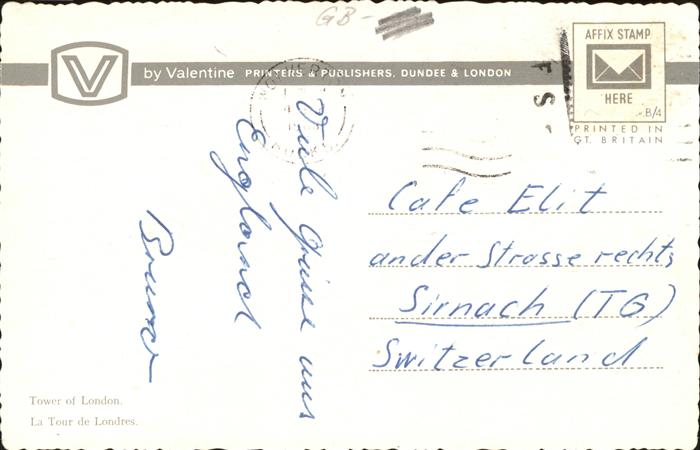 GB-
by Valentine PRINTERS & PUBLISHERS, DUNDEE & LONDON
AFFIX STAMP
HERE
B/4
PRINTED IN
GT. BRITAIN
Viele Grüsse aus
England
Bruno
Cafe Elit
ander Strasse rechts
Sirnach (TG)
Switzerland
Tower of London.
La Tour de Londres.